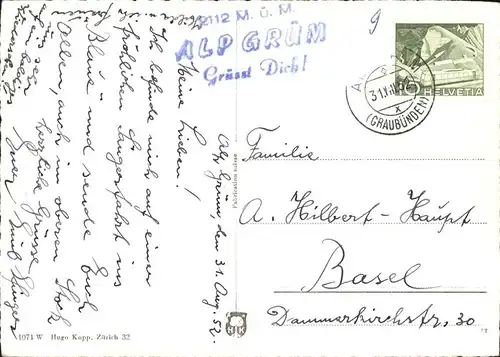 2112 M. ü. M.
ALP GRÜM
Grüsst Dich!
9
HELVETIA
(GRAUBÜNDEN)
Alp Grüm, den 31. Aug. 52.
Meine Lieben!
Ich befinde mich auf einer
fröhlichen Sängerfahrt ins
Blaue und sende Euch
Allen, auch im oberen Stock
herzliche Grüsse
Euer
Familie
A. Hilbert-Haupt
Basel
Dammerkirchstr. 30
Fabrication suisse
1071 W Hugo Kopp, Zürich 32